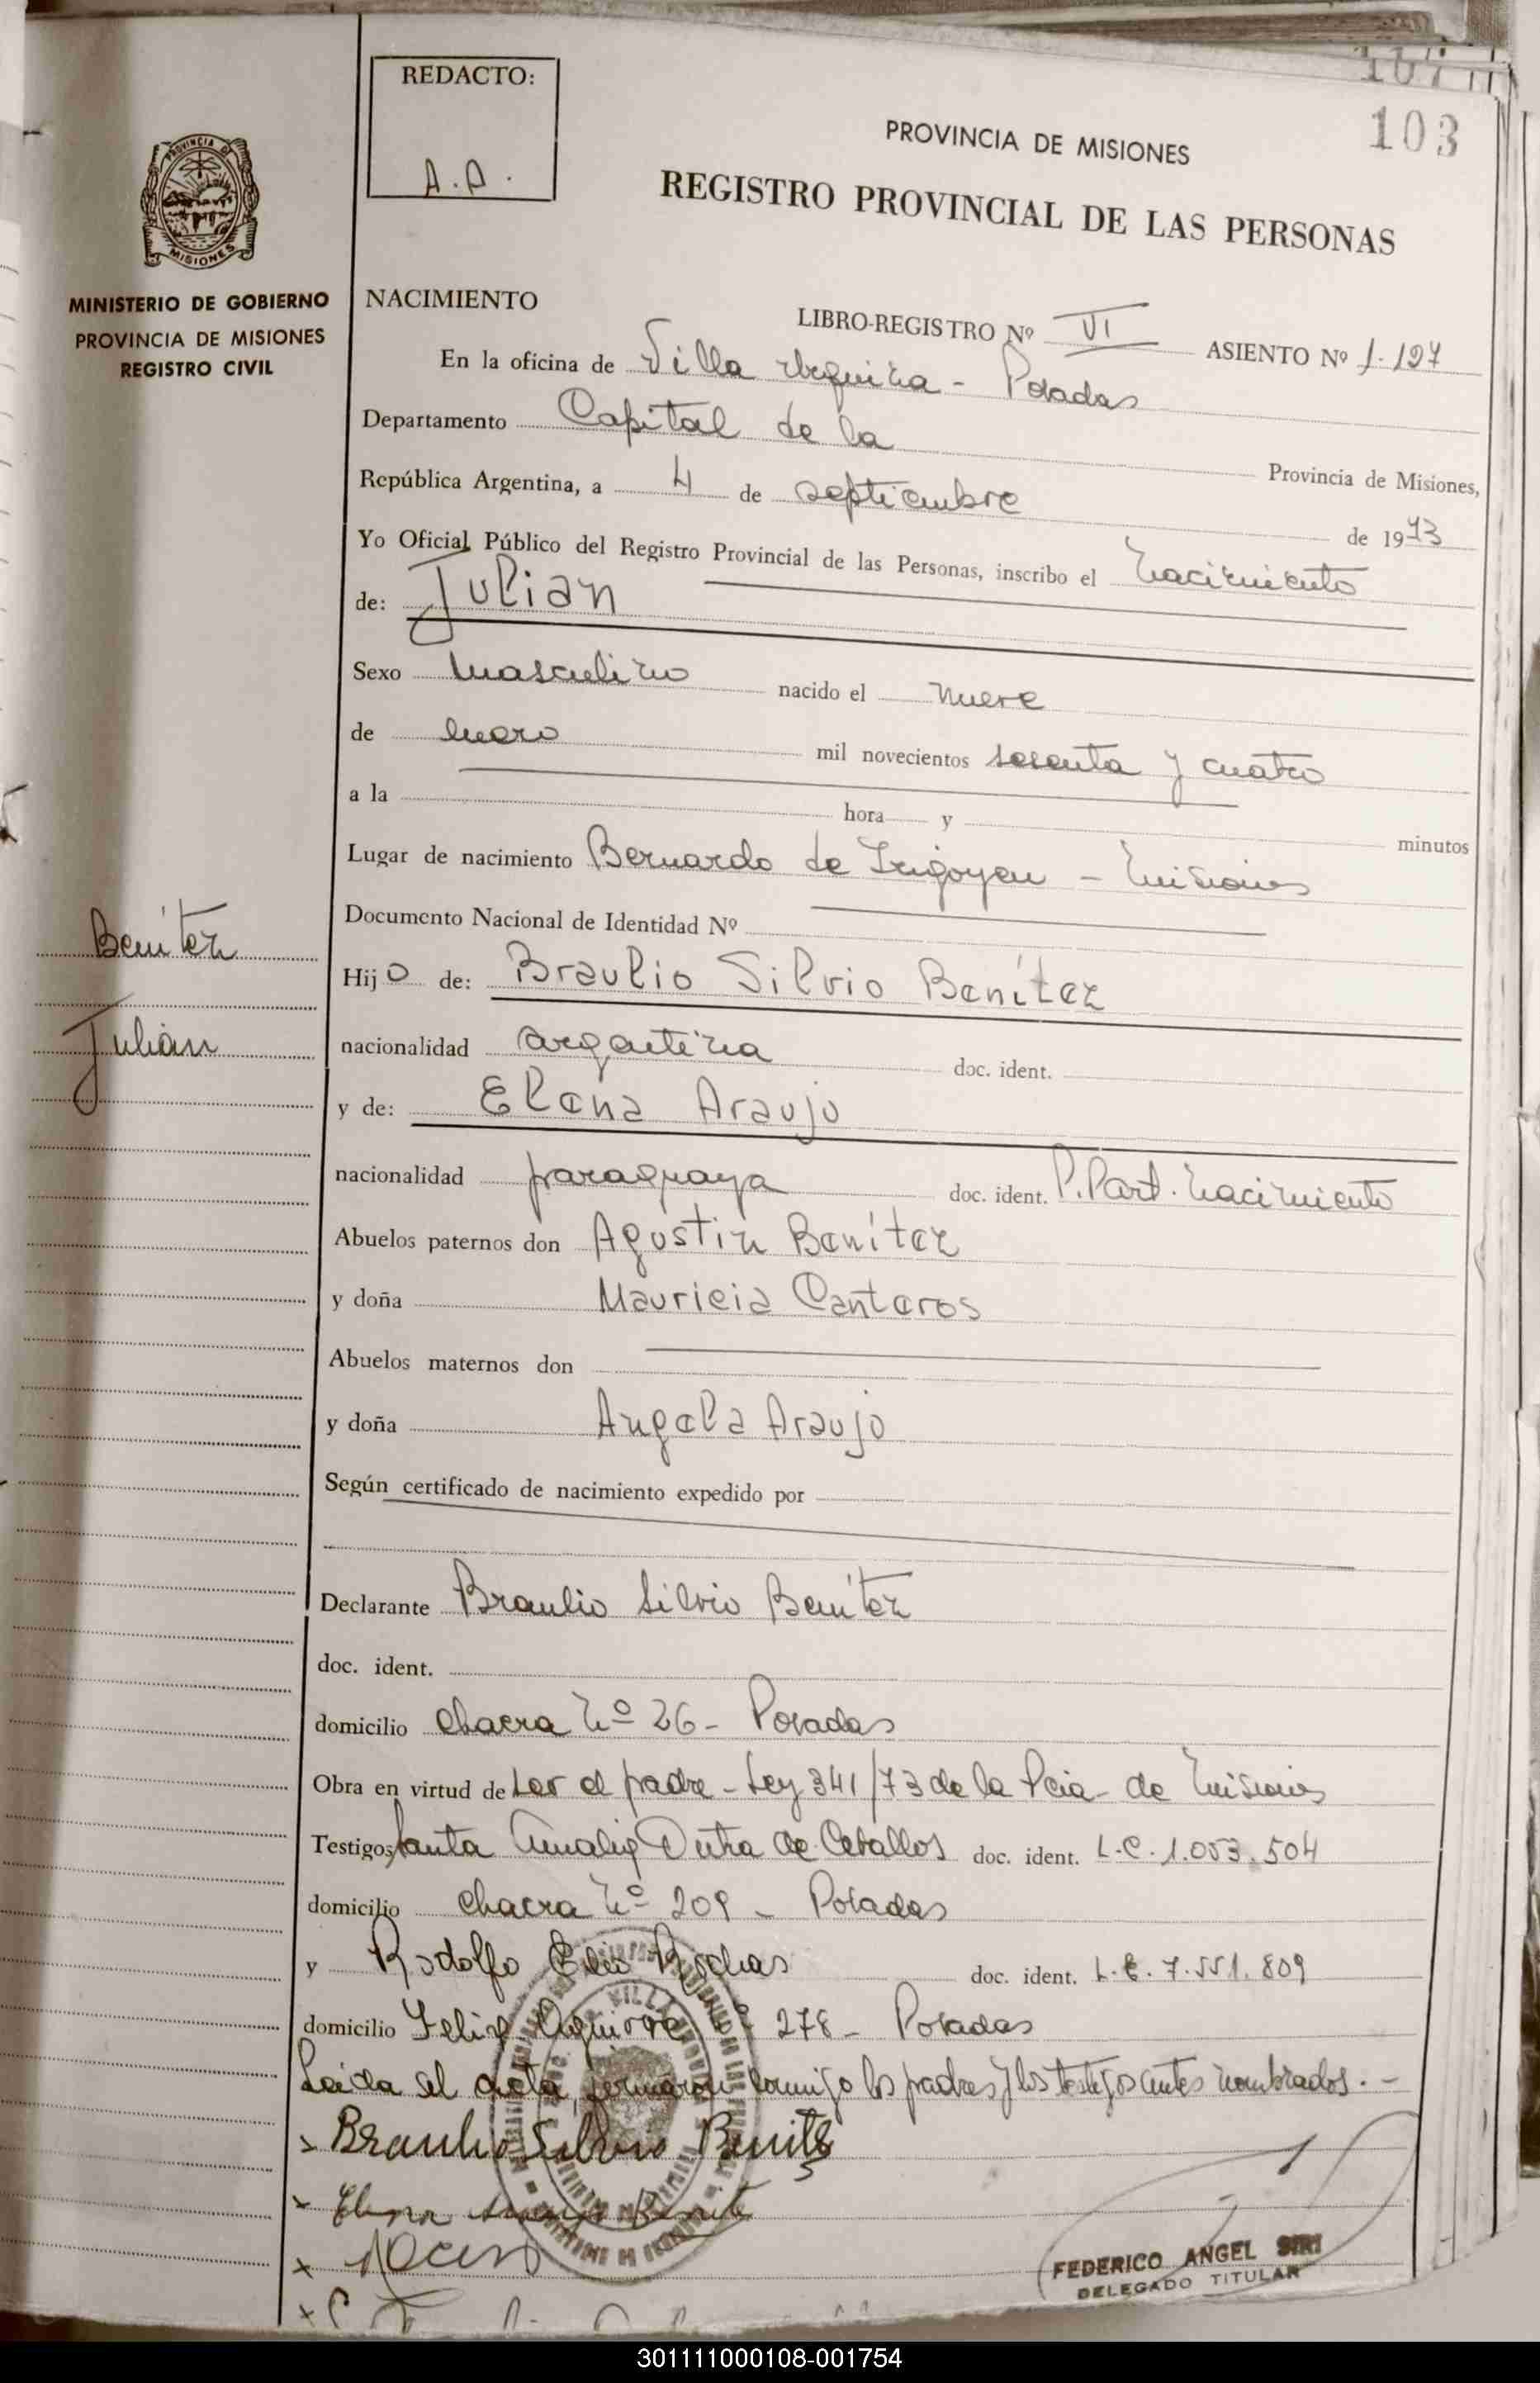 107
103
REDACTO:
A.A.
PROVINCIA DE MISIONES
REGISTRO PROVINCIAL DE LAS PERSONAS
PROVINCIA DE
MISIONES
MINISTERIO DE GOBIERNO
PROVINCIA DE MISIONES
REGISTRO CIVIL
NACIMIENTO
LIBRO-REGISTRO Nº VI ASIENTO Nº 1.197
En la oficina de Villa Urquiza - Posadas
Departamento Capital de la Provincia de Misiones,
República Argentina, a 4 de septiembre de 1973
Yo Oficial Público del Registro Provincial de las Personas, inscribo el nacimiento
de: Julian
Sexo masculino nacido el nueve
de enero mil novecientos sesenta y cuatro
a la hora y minutos
Lugar de nacimiento Bernardo de Irigoyen - Misiones
Documento Nacional de Identidad Nº
Benítez
Julián
Hijo de: Braulio Silvio Benítez
nacionalidad argentina doc. ident.
y de: Elena Araujo
nacionalidad paraguaya doc. ident. P. Part. nacimiento
Abuelos paternos don Agustín Benítez
y doña Mauricia Canteros
Abuelos maternos don
y doña Angela Araujo
Según certificado de nacimiento expedido por
Declarante Braulio Silvio Benítez
doc. ident.
domicilio chacra Nº 26 - Posadas
Obra en virtud de ser el padre - Ley 341/73 de la Pcia - de Misiones
Testigos Santa Amalia Dutra de Ceballos doc. ident. L.C. 1.053.504
domicilio chacra Nº 209 - Posadas
y Rodolfo Rochas doc. ident. L.E. 7.551.809
domicilio Felix Aguirre Nº 278 - Posadas
Leida el acta, firmaron conmigo los padres y los testigos antes nombrados. -
x Braulio Silvio Benítez
x Elena Araujo Benite
x
x
FEDERICO ANGEL SIRI
DELEGADO TITULAR
301111000108-001754